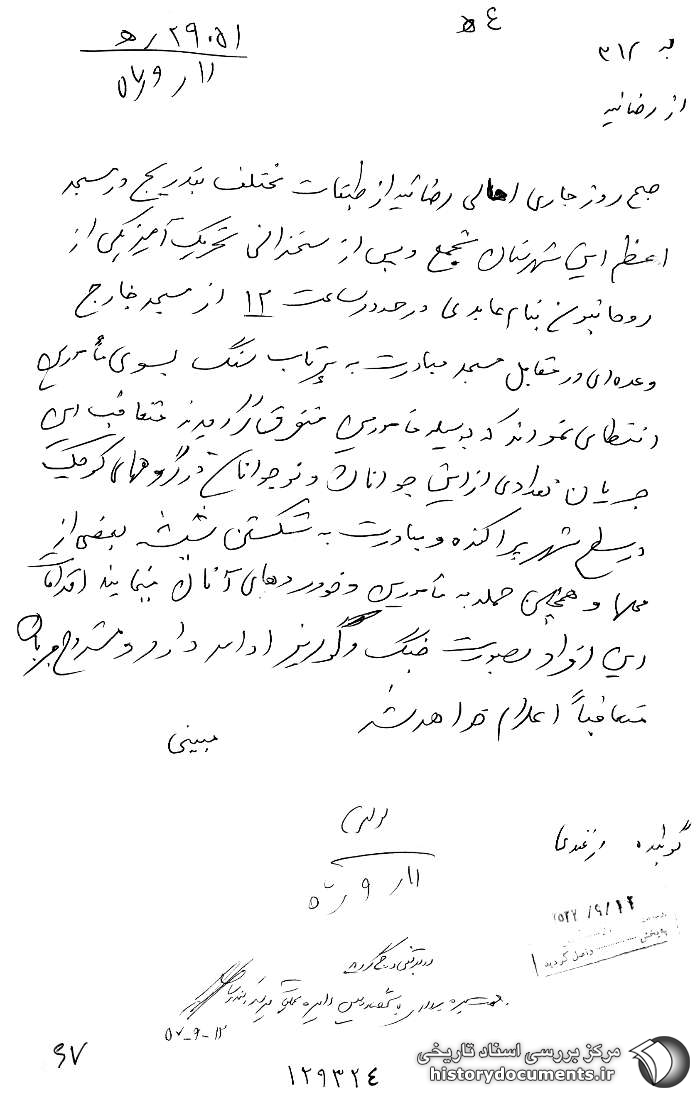 به ۳۱۲
۲۹۰۵۱ ره
۱۱ ر ۹ ر ۵۷
از رضائیه
صبح روز جاری اهالی رضائیه از طبقات مختلف بتدریج در مسجد
اعظم این شهرستان تجمع و پس از سخنرانی تحریک آمیز یکی از
روحانیون بنام عابدی در حدود ساعت ۱۲ از مسجد خارج
و عده‌ای در مقابل مسجد مبادرت به پرتاب سنگ بسوی مأمورین
انتظامی نمودند که بوسیله مأمورین متفرق گردیدند متعاقب این
جریان تعدادی از این جوانان و نوجوانان در گروههای کوچک
در سطح شهر پراکنده و مبادرت به شکستن شیشه بعضی از
محلها و همچنین حمله به مأمورین و خودروهای آنان مینمایند اقدامات
این افراد بصورت جنگ و گریز ادامه دارد و مشروح جریان
متعاقباً اعلام خواهد شد
مبینی
۱۱ ر ۹ ر ۵۷
گوینده
داخل گردید
۵۷-۹-۱۲
۶۷
۱۲۹۳۲۴
مرکز بررسی اسناد تاریخی
historydocuments.ir